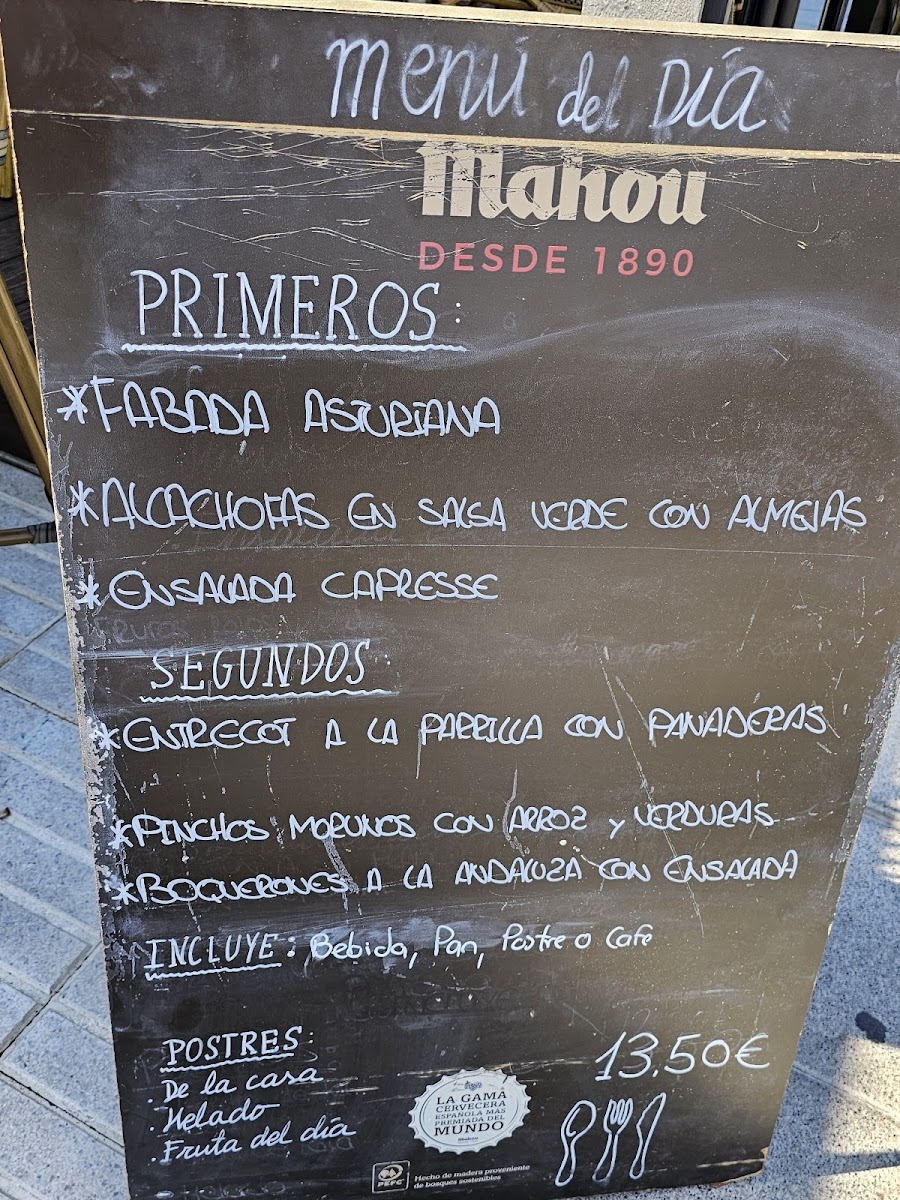 Menú del Día
Mahou
DESDE 1890
PRIMEROS:
*FABADA ASTURIANA
*ALCACHOFAS EN SALSA VERDE CON ALMEJAS
*ENSALADA CAPRESSE
SEGUNDOS:
*ENTRECOT A LA PARRILLA CON PANADERAS
*PINCHOS MORUNOS CON ARROZ y VERDURAS
*BOQUERONES A LA ANDALUZA CON ENSALADA
INCLUYE: Bebida, Pan, Postre o Cafe
POSTRES:
. De la casa
. Helado
. Fruta del día
13,50€
LA GAMA
CERVECERA
ESPAÑOLA MÁS
PREMIADA DEL
MUNDO
Mahou
PEFC
Hecho de madera proveniente
de bosques sostenibles